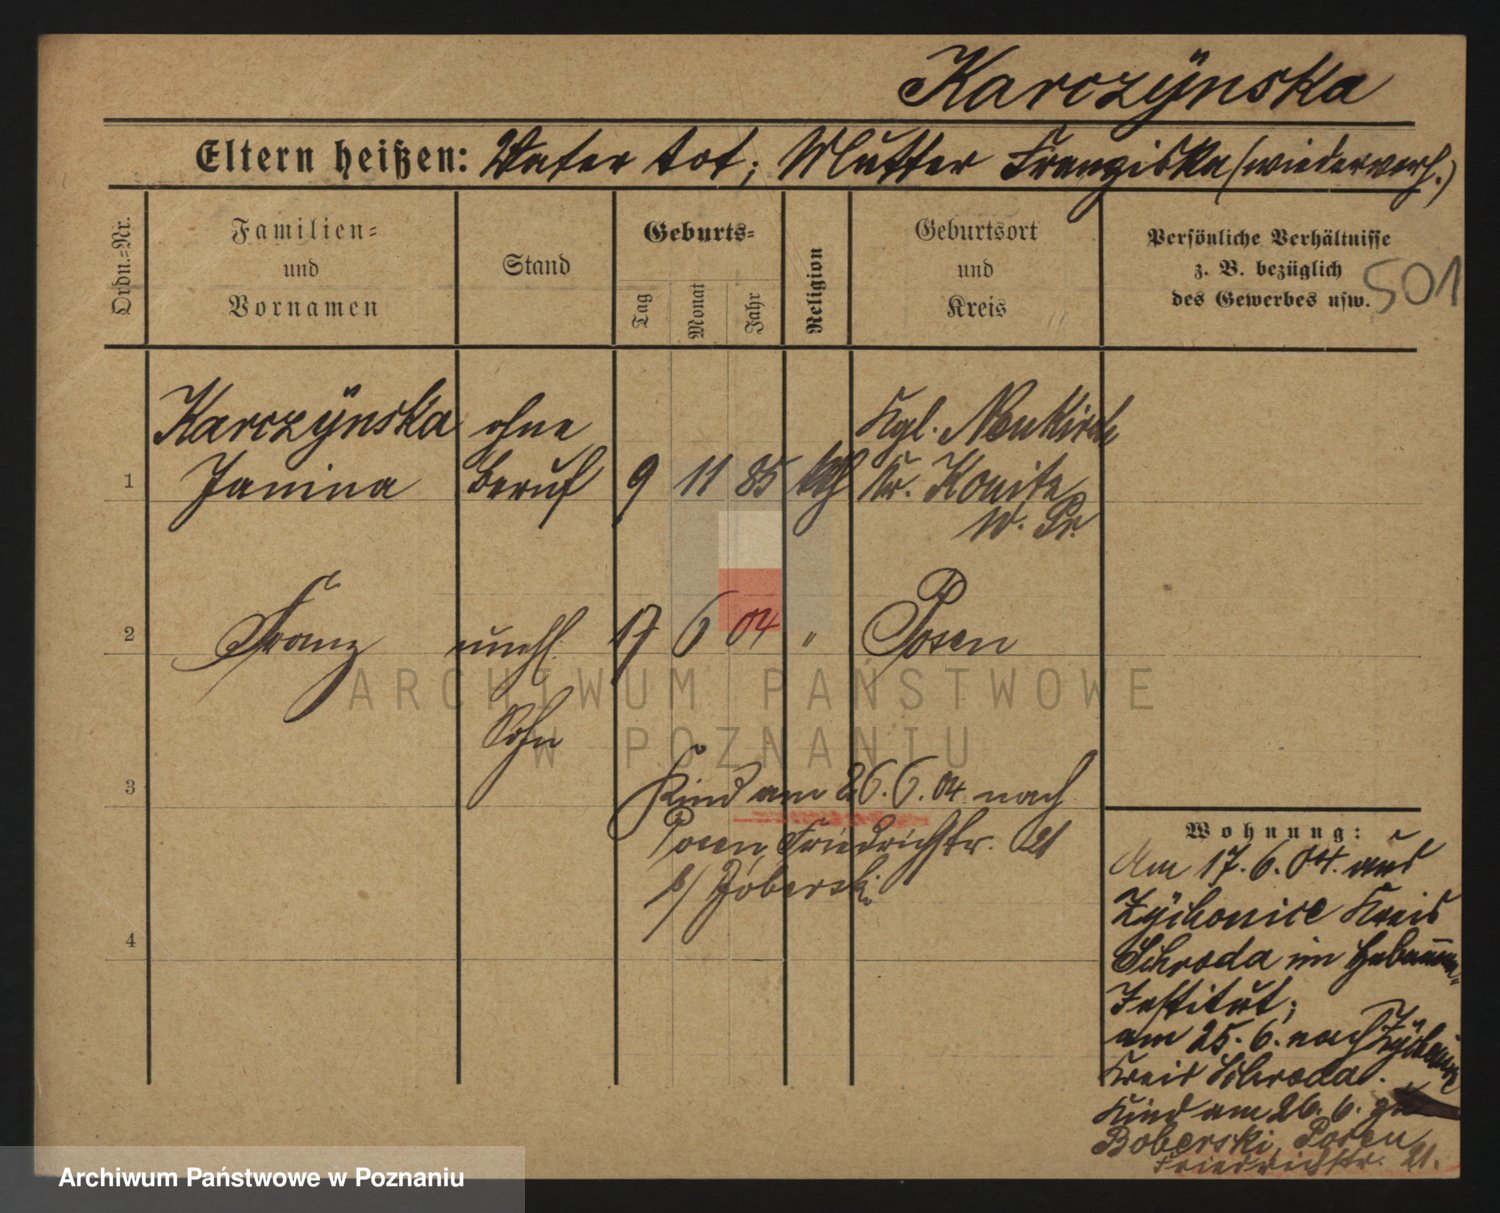 Karczÿnska
Eltern heißen: Vater tot; Mutter Franziska (wiederverh.)
Ordn.-Nr.
Familien-
und
Vornamen
Stand
Geburts-
Tag
Monat
Jahr
Religion
Geburtsort
und
Kreis
Persönliche Verhältnisse
z. B. bezüglich
des Gewerbes usw.
501
1
Karczÿnska
Janina
ohne
Beruf
9
11
85
kth
Kgl. Neukirch
Kr. Konitz
W. Pr.
2
Franz
unehl.
Sohn
17
6
04
"
Posen
3
Kind am 26.6.04. nach
Posen, Friedrichstr. 21
b/ Boberski.
4
Wohnung:
Am 17.6.04. aus
Zÿchonice Kreis
Schroda im Hebammen-
Institut;
am 25.6. nach
Kreis Schroda.
Kind am 26.6. zu
Boberski, Posen
Friedrichstr. 21.
ARCHIWUM PAŃSTWOWE
W POZNANIU
Archiwum Państwowe w Poznaniu